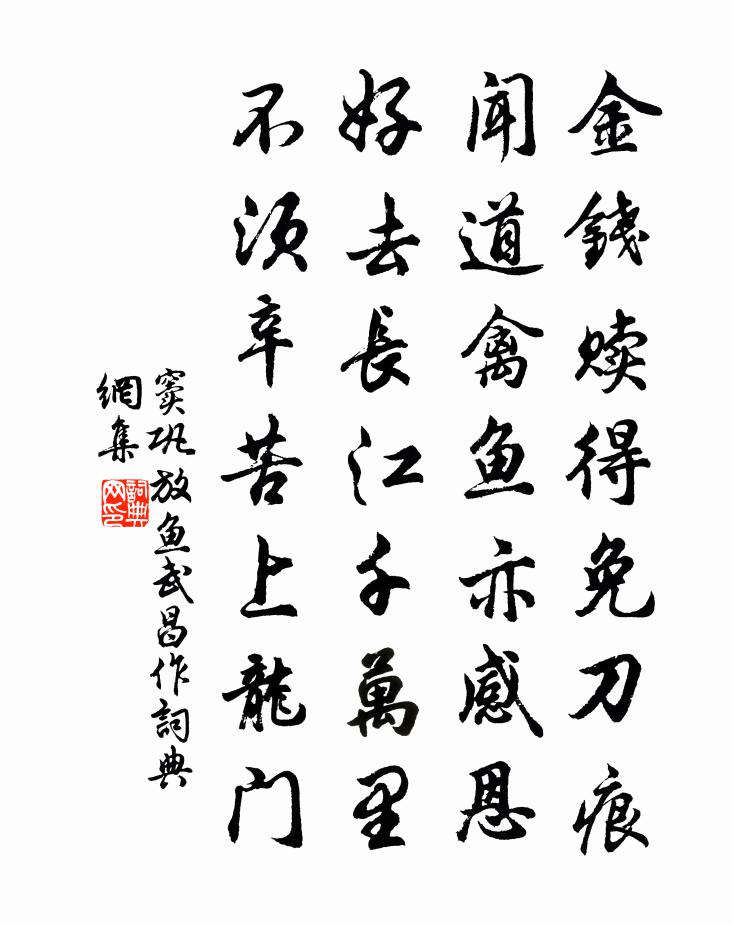 金錢贖得免刀痕
闻道禽鱼亦感恩
好去長江千萬里
不須辛苦上龍门
窦巩放鱼武昌作詞典
網集
詞典网印